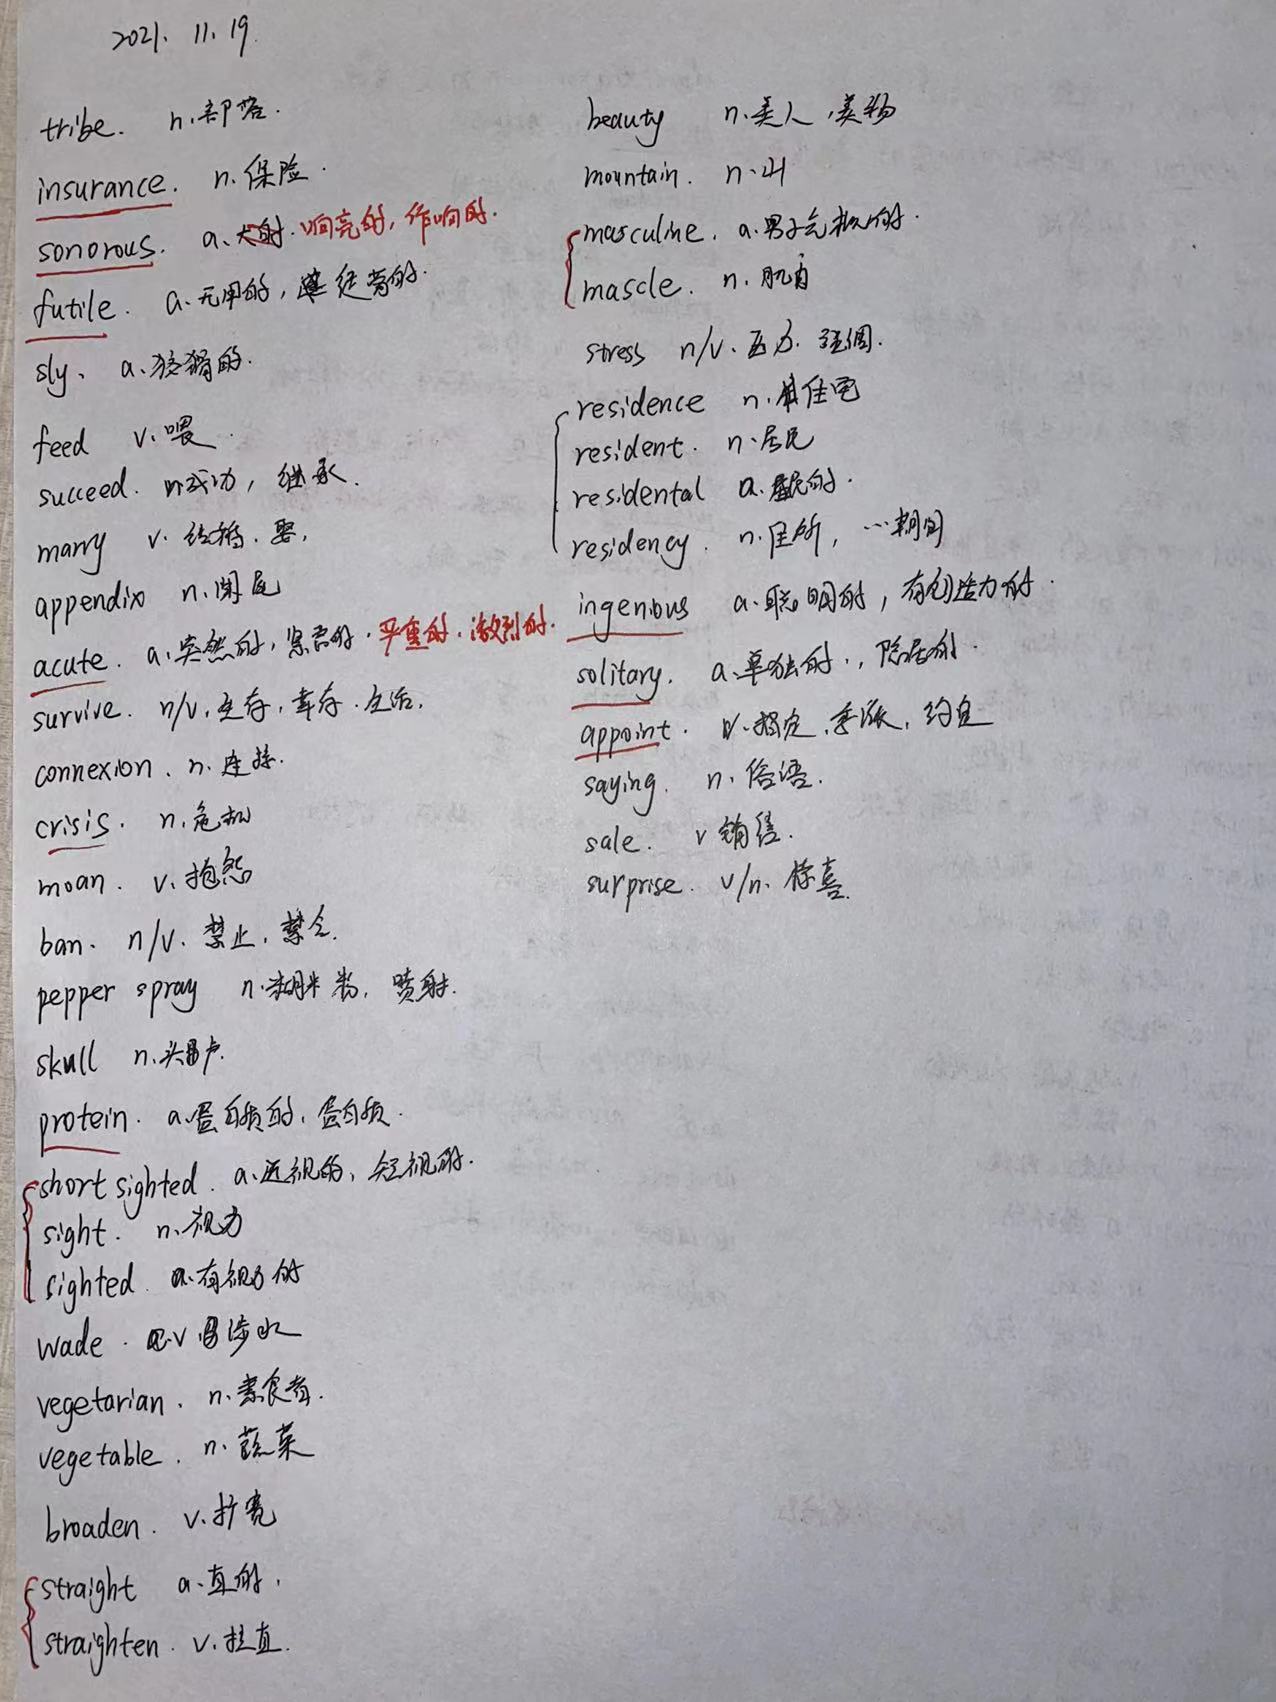 2021. 11. 19.
tribe. n.部落.
insurance. n.保险.
sonorous. a. 响亮的, 作响的.
futile. a.无用的,
sly. a.狡猾的.
feed v.喂.
succeed. 成功, 继承.
marry v.结婚.娶,
appendix n.阑尾
acute. a.突然的, 紧急的.严重的.激烈的.
survive. n/v.生存, 幸存.生活,
connexion. n.连接.
crisis. n.危机
moan. v.抱怨
ban. n/v.禁止, 禁令.
pepper spray n. 喷射.
skull n.头颅.
protein. a.蛋白质的, 蛋白质.
short sighted. a.近视的, 短视的.
sight. n.视力
sighted. a.有视力的
wade. v 涉水
vegetarian. n.素食者.
vegetable. n.蔬菜
broaden. v.扩宽
straight a.直的.
straighten. v.拉直.
beauty n.美人,美物
mountain. n.山
masculine. a.男子气概的.
mascle. n.肌肉
stress n/v.压力.强调.
residence n.住宅
resident. n.居民
residental a.居民的.
residency. n.住所, …期间
ingenious a.聪明的, 有创造力的.
solitary. a.单独的., 隐居的.
appoint. v.指定.委派.约定
saying. n.俗语.
sale. v 销售.
surprise. v/n.惊喜.